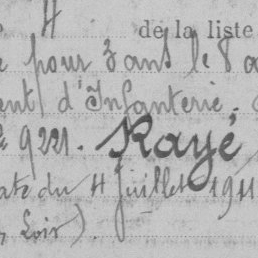 4 de la liste
pour 3 ans le 8
d'Infanterie.
9221. Rayé
du 4 Juillet 1911
Loir).